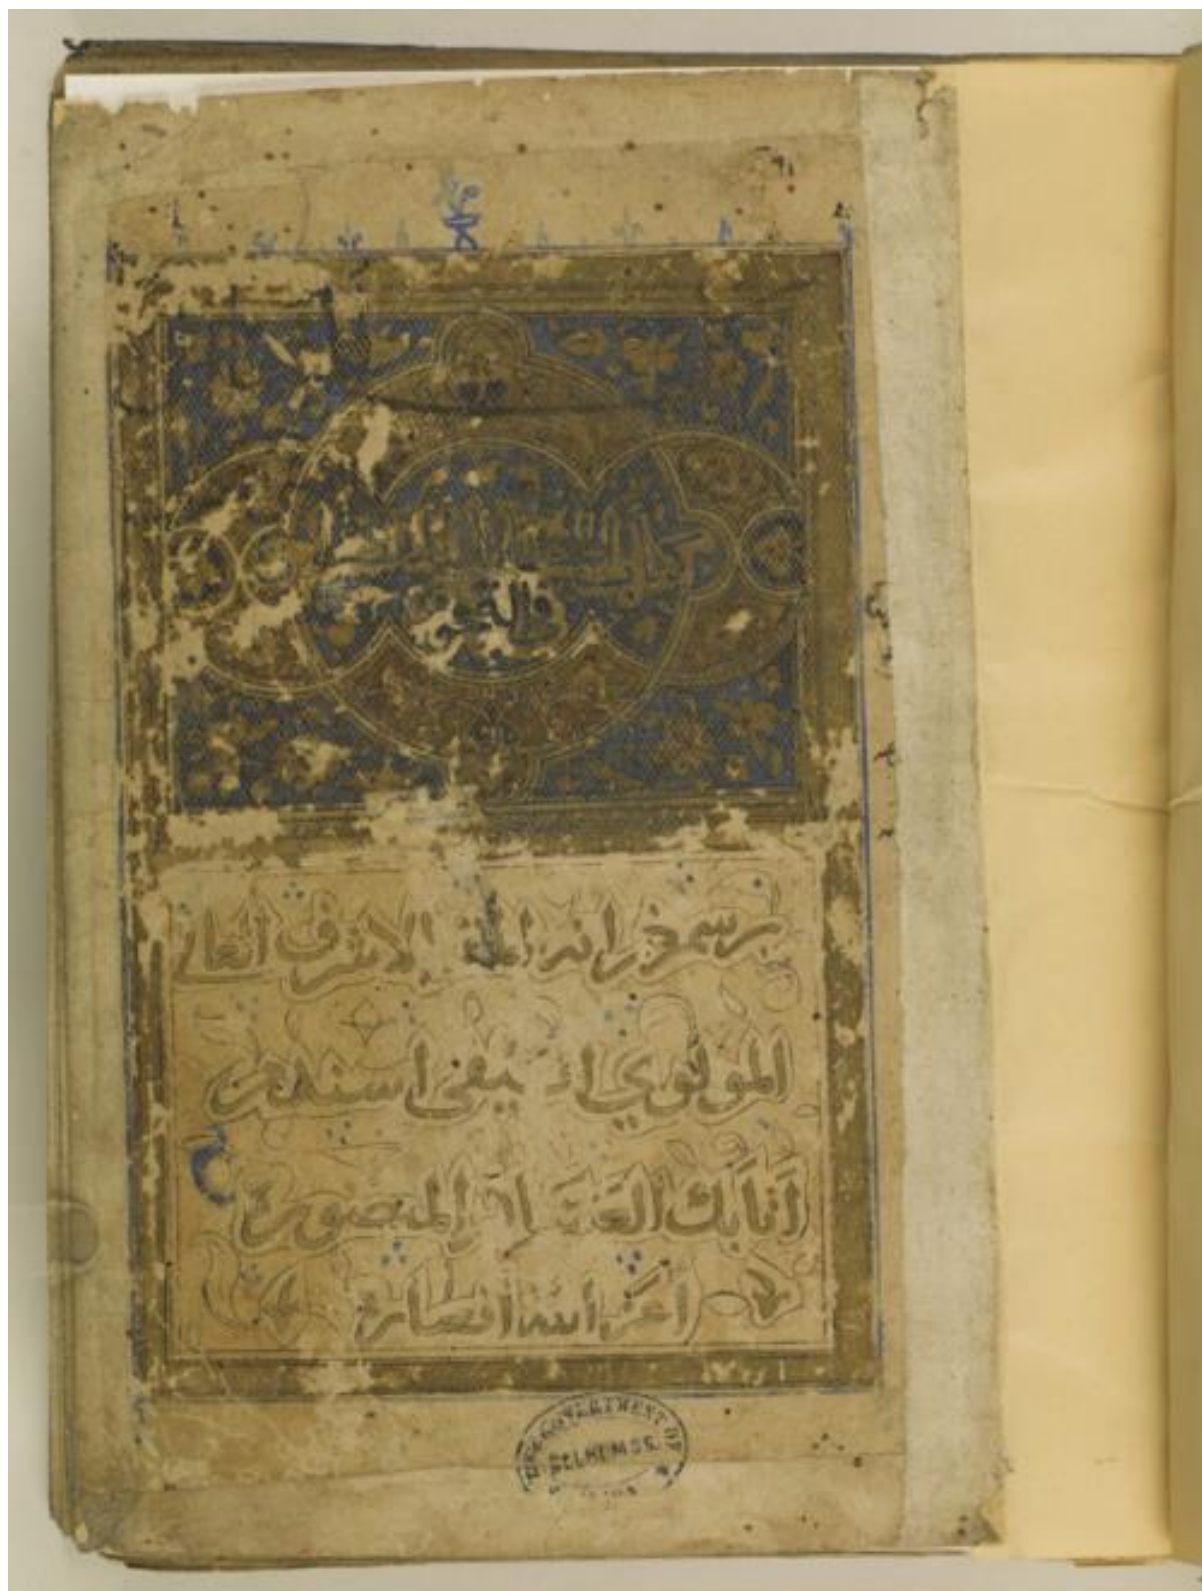 كتاب
في النحو
برسم خزانه المقر الاشرف العالي
المولوي السيفى اسندمر
اتابك العساكر المنصورة
اعز الله انصاره
GOVERNMENT OF
DELHI MSS.